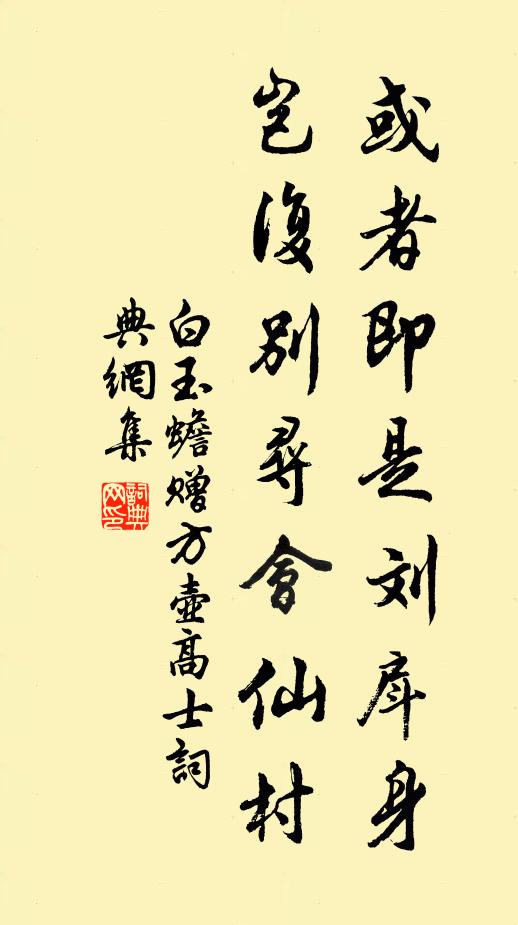 或者即是刘戽身
岂復別尋會仙村
白玉蟾赠方壺高士詞
典網集
詞典网印